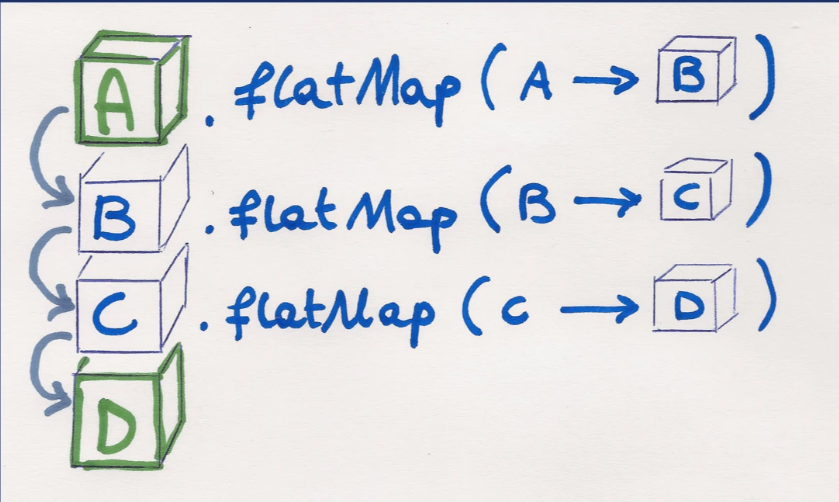 A .flatMap ( A → B )
B .flatMap ( B → C )
C .flatMap ( C → D )
D